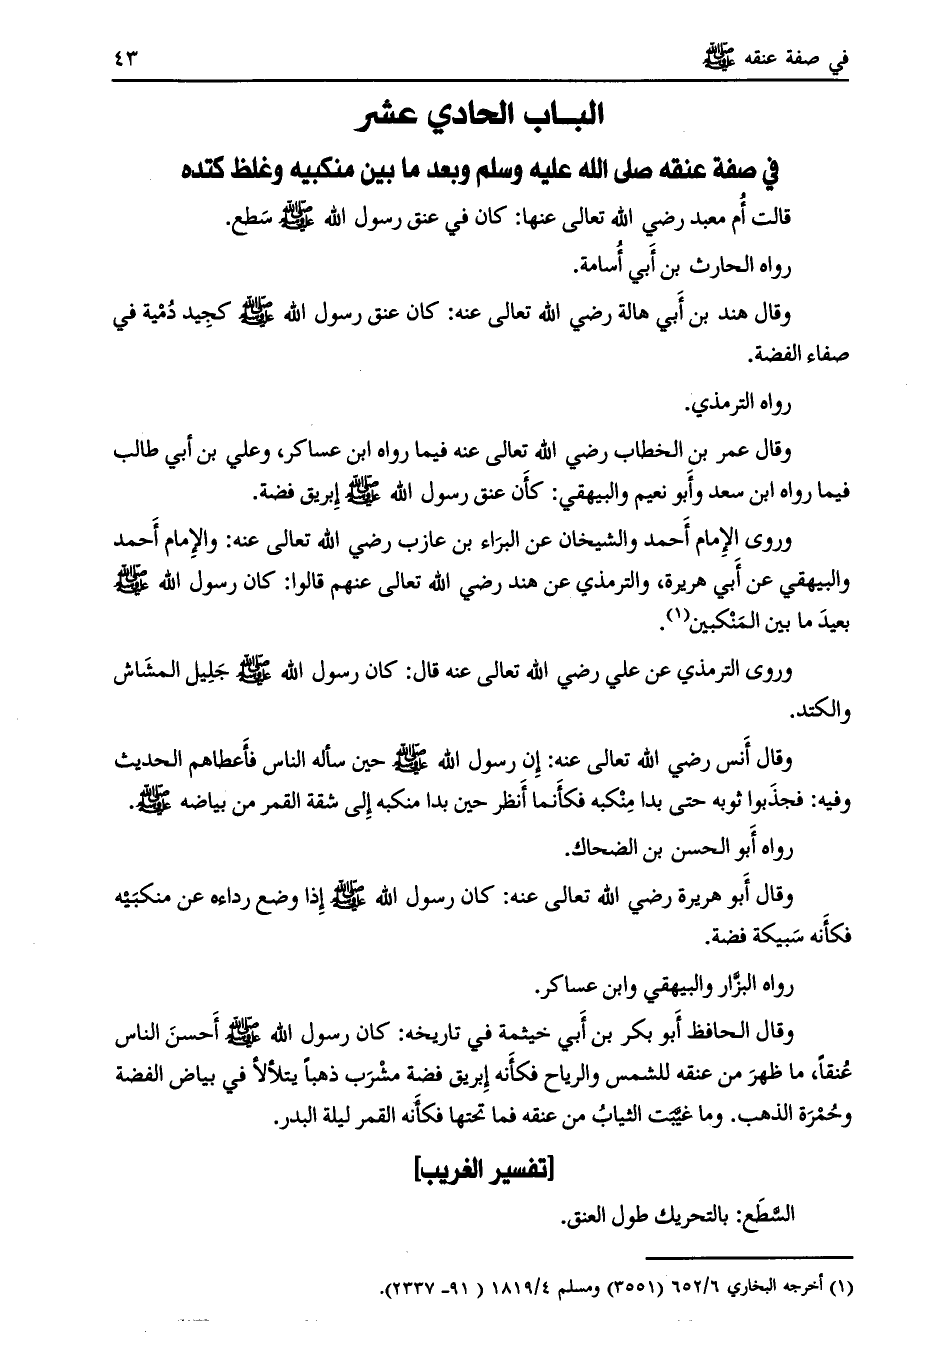 في صفة عنقه ﷺ ٤٣
الباب الحادي عشر
في صفة عنقه صلى الله عليه وسلم وبعد ما بين منكبيه وغلظ كتده
قالت أُم معبد رضي الله تعالى عنها: كان في عنق رسول الله ﷺ سَطع.
رواه الحارث بن أَبي أُسامة.
وقال هند بن أَبي هالة رضي الله تعالى عنه: كان عنق رسول الله ﷺ كجِيد دُمْية في
صفاء الفضة.
رواه الترمذي.
وقال عمر بن الخطاب رضي الله تعالى عنه فيما رواه ابن عساكر، وعلي بن أبي طالب
فيما رواه ابن سعد وأَبو نعيم والبيهقي: كأَن عنق رسول الله ﷺ إِبريق فضة.
وروى الإِمام أَحمد والشيخان عن البرَاء بن عازب رضي الله تعالى عنه: والإِمام أَحمد
والبيهقي عن أَبي هريرة، والترمذي عن هند رضي الله تعالى عنهم قالوا: كان رسول الله ﷺ
بعيدَ ما بين المَنْكبين(١).
وروى الترمذي عن علي رضي الله تعالى عنه قال: كان رسول الله ﷺ جَلِيل المشَاش
والكتد.
وقال أَنس رضي الله تعالى عنه: إِن رسول الله ﷺ حين سأله الناس فأَعطاهم الحديث
وفيه: فجذَبوا ثوبه حتى بدا مِنْكبه فكأَنما أَنظر حين بدا منكبه إِلى شقة القمر من بياضه ﷺ.
رواه أَبو الحسن بن الضحاك.
وقال أَبو هريرة رضي الله تعالى عنه: كان رسول الله ﷺ إِذا وضع رداءه عن منكبَيْه
فكأَنه سَبيكة فضة.
رواه البزَّار والبيهقي وابن عساكر.
وقال الحافظ أَبو بكر بن أَبي خيثمة في تاريخه: كان رسول الله ﷺ أَحسنَ الناس
عُنقاً، ما ظهرَ من عنقه للشمس والرياح فكأَنه إِبريق فضة مشْرَب ذهباً يتلأْلأ في بياض الفضة
وحُمْرَة الذهب. وما غيَّبَت الثيابُ من عنقه فما تحتها فكأَنه القمر ليلة البدر.
[تفسير الغريب]
السَّطَع: بالتحريك طول العنق.
(١) أخرجه البخاري ٦/ ٦٥٢ (٣٥٥١) ومسلم ٤/ ١٨١٩ ( ٩١- ٢٣٣٧).